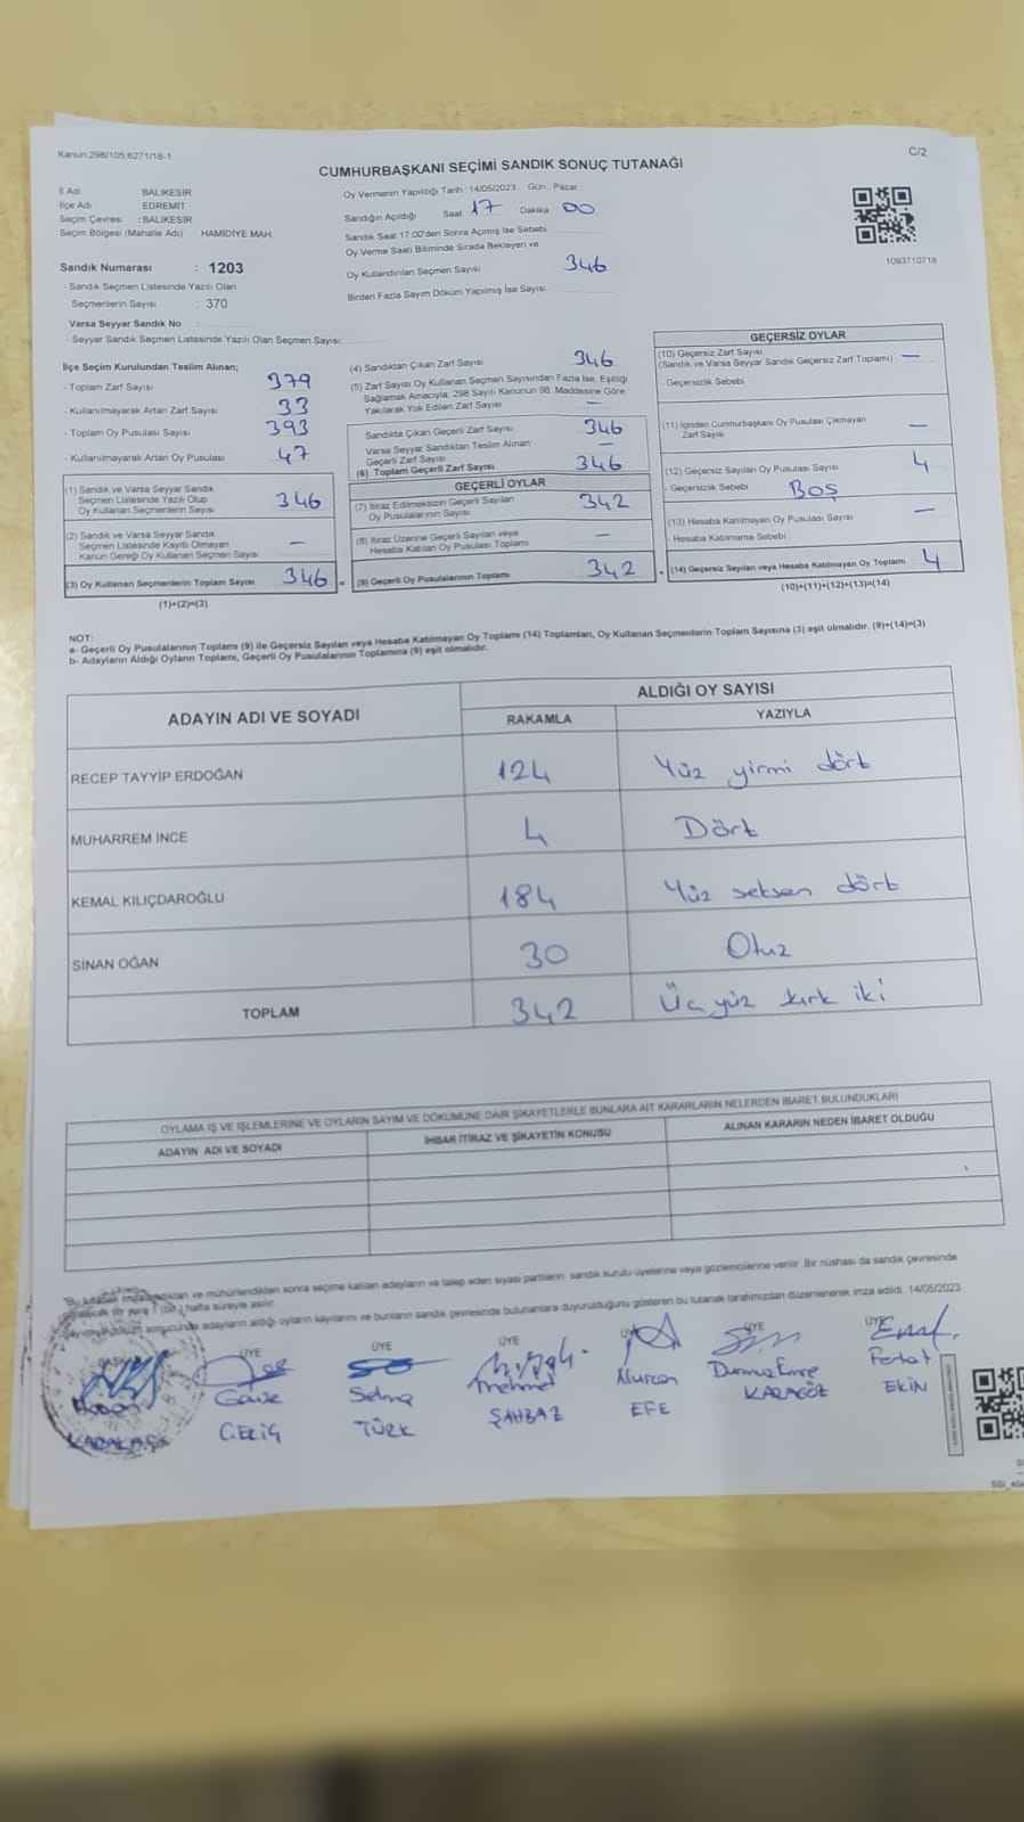 Kanun:298/105,6271/18-1
C/2
CUMHURBAŞKANI SEÇİMİ SANDIK SONUÇ TUTANAĞI
İl Adı BALIKESİR
İlçe Adı EDREMİT
Seçim Çevresi :BALIKESİR
Seçim Bölgesi (Mahalle Adı) HAMİDİYE MAH.
Sandık Numarası : 1203
- Sandık Seçmen Listesinde Yazılı Olan
Seçmenlerin Sayısı : 370
Varsa Seyyar Sandık No
- Seyyar Sandık Seçmen Listesinde Yazılı Olan Seçmen Sayısı
Oy Vermenin Yapıldığı Tarih : 14/05/2023 Gün : Pazar
Sandığın Açıldığı Saat 17 Dakika 00
Sandık Saat 17:00'den Sonra Açılmış İse Sebebi
Oy Verme Saati Bitiminde Sırada Bekleyen ve
Oy Kullandırılan Seçmen Sayısı 346
Birden Fazla Sayım Döküm Yapılmış İse Sayısı
1093710718
İlçe Seçim Kurulundan Teslim Alınan;
- Toplam Zarf Sayısı 379
- Kullanılmayarak Artan Zarf Sayısı 33
- Toplam Oy Pusulası Sayısı 393
- Kullanılmayarak Artan Oy Pusulası 47
(1) Sandık ve Varsa Seyyar Sandık
Seçmen Listesinde Yazılı Olup
Oy Kullanan Seçmenlerin Sayısı 346
(2) Sandık ve Varsa Seyyar Sandık
Seçmen Listesinde Kayıtlı Olmayan
Kanun Gereği Oy Kullanan Seçmen Sayısı —
(3) Oy Kullanan Seçmenlerin Toplam Sayısı 346
(1)+(2)=(3)
(4) Sandıktan Çıkan Zarf Sayısı 346
(5) Zarf Sayısı Oy Kullanan Seçmen Sayısından Fazla İse, Eşitliği
Sağlamak Amacıyla, 298 Sayılı Kanunun 98. Maddesine Göre
Yakılarak Yok Edilen Zarf Sayısı —
Sandıkta Çıkan Geçerli Zarf Sayısı 346
Varsa Seyyar Sandıktan Teslim Alınan
Geçerli Zarf Sayısı —
(6) Toplam Geçerli Zarf Sayısı 346
GEÇERLİ OYLAR
(7) İtiraz Edilmeksizin Geçerli Sayılan
Oy Pusulalarının Sayısı 342
(8) İtiraz Üzerine Geçerli Sayılan veya
Hesaba Katılan Oy Pusulası Toplamı —
(9) Geçerli Oy Pusulalarının Toplamı 342
GEÇERSİZ OYLAR
(10) Geçersiz Zarf Sayısı
(Sandık ve Varsa Seyyar Sandık Geçersiz Zarf Toplamı) —
Geçersizlik Sebebi
(11) İçinden Cumhurbaşkanı Oy Pusulası Çıkmayan
Zarf Sayısı —
(12) Geçersiz Sayılan Oy Pusulası Sayısı 4
- Geçersizlik Sebebi BOŞ
(13) Hesaba Katılmayan Oy Pusulası Sayısı —
- Hesaba Katılmama Sebebi
(14) Geçersiz Sayılan veya Hesaba Katılmayan Oy Toplamı 4
(10)+(11)+(12)+(13)=(14)
NOT:
a- Geçerli Oy Pusulalarının Toplamı (9) ile Geçersiz Sayılan veya Hesaba Katılmayan Oy Toplamı (14) Toplamları, Oy Kullanan Seçmenlerin Toplam Sayısına (3) eşit olmalıdır. (9)+(14)=(3)
b- Adayların Aldığı Oyların Toplamı, Geçerli Oy Pusulalarının Toplamına (9) eşit olmalıdır.
ADAYIN ADI VE SOYADI
ALDIĞI OY SAYISI
RAKAMLA YAZIYLA
RECEP TAYYİP ERDOĞAN 124 Yüz yirmi dört
MUHARREM İNCE 4 Dört
KEMAL KILIÇDAROĞLU 184 Yüz seksen dört
SİNAN OĞAN 30 Otuz
TOPLAM 342 Üç yüz kırk iki
OYLAMA İŞ VE İŞLEMLERİNE VE OYLARIN SAYIM VE DÖKÜMÜNE DAİR ŞİKAYETLERLE BUNLARA AİT KARARLARIN NELERDEN İBARET BULUNDUKLARI
ADAYIN ADI VE SOYADI
İHBAR İTİRAZ VE ŞİKAYETİN KONUSU
ALINAN KARARIN NEDEN İBARET OLDUĞU
ve mühürlendikten sonra seçime katılan adayların ve talep eden siyasi partilerin sandık kurulu üyelerine veya gözlemcilerine verilir. Bir nüshası da sandık çevresinde
hafta süreyle asılır.
sonucunda adayların aldığı oyların sayılarını ve bunların sandık çevresinde bulunanlara duyurulduğunu gösteren bu tutanak tarafımızdan düzenlenerek imza edildi. 14/05/2023
ÜYE ÜYE ÜYE ÜYE ÜYE ÜYE
Selma Mehmet Nurcan Durmuş Emre Ferhat
TÜRK ŞAHBAZ EFE KARAGÖZ EKİN